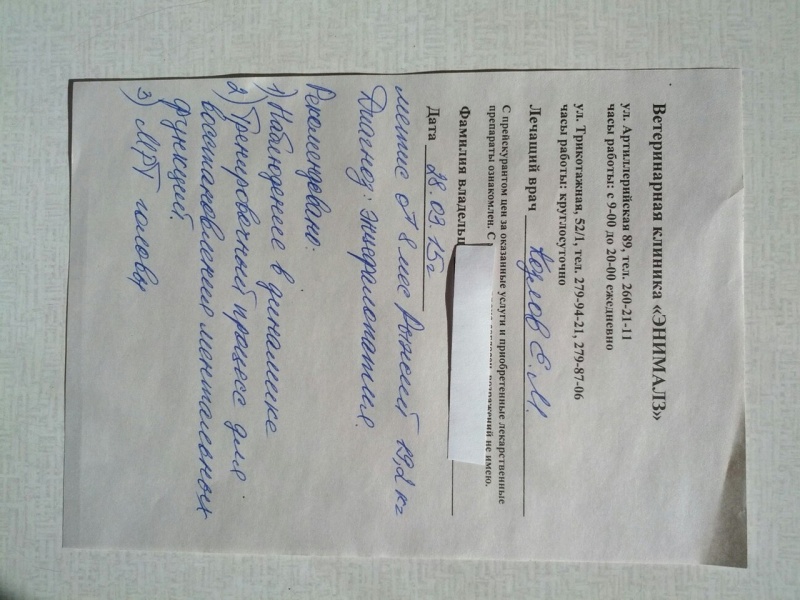 Ветеринарная клиника «ЭНИМАЛЗ»
ул. Артиллерийская 89, тел. 260-21-11
часы работы: с 9-00 до 20-00 ежедневно
ул. Трикотажная, 52/1, тел. 279-94-21, 279-87-06
часы работы: круглосуточно
Лечащий врач Козлов Е.М.
С прейскурантом цен за оказанные услуги и приобретенные лекарственные
препараты ознакомлен. С согласен, возражений не имею.
Фамилия владельц
Дата 28.03.15г
метис ♂ 8 мес Рыжий 19,2 кг
Диагноз: энцефалопатия.
Рекомендовано:
1) Наблюдение в динамике
2) Тренировочный процесс для
восстановления ментальных
функций.
3) МРТ головы